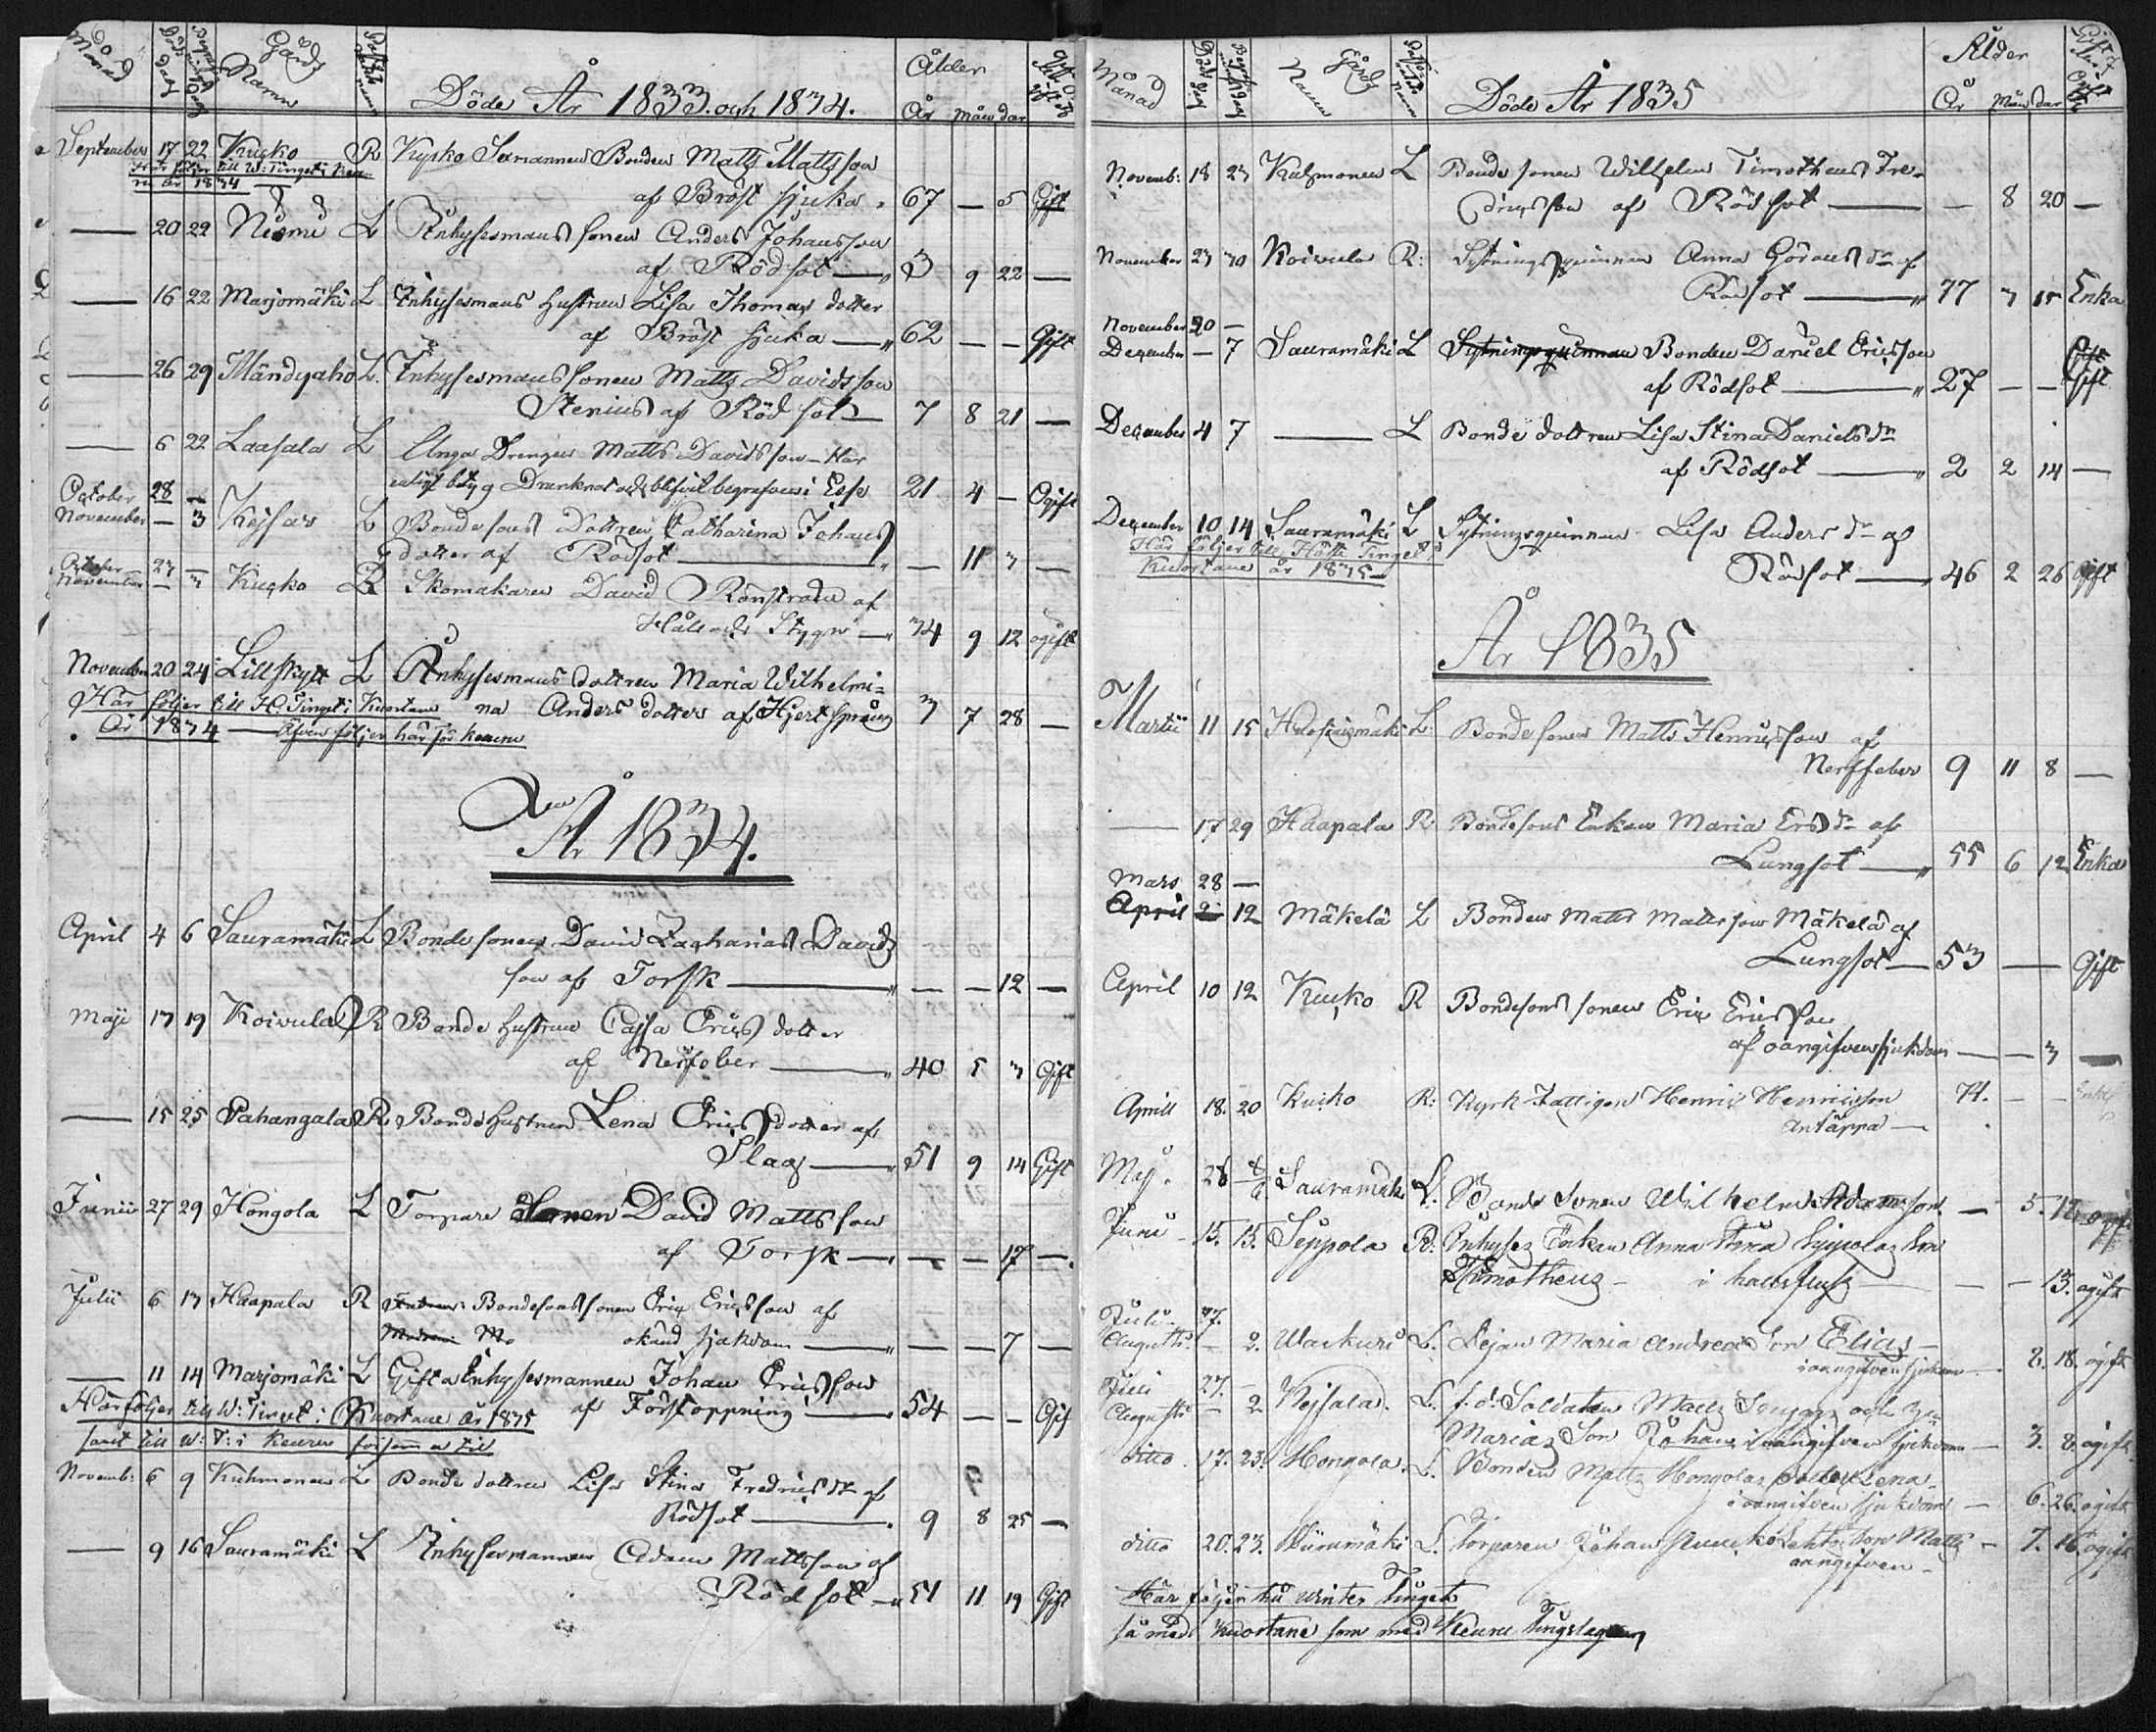 Månad Döds dag Begrafnings dag Gårds Namn Döde År 1833. och 1834. Ålder
År mån dar
September 17 22 Kucko R Kyrko Sexmannen Bonden Matts Mattsson
Här följer till W: Tinget i Keu-
ru år 1834
af Bröst sjuka 67 — 5 Gift
— 20 22 Niemi L Inhysesmans sonen Anders Johansson
af Rödsot — 3 9 22 —
— 16 22 Marjomäki L Inhysesmans hustrun Lisa Thomas dotter
af Bröst sjuka — 62 — — Gift
— 26 29 Mändyaho L. Inhysesmans sonen Matts Davidsson
Stenius af Rödsot — 7 8 21 —
— 6 22 Laasala L Unga Drengen Matts Davidsson — Har
enligt betyg Drunknat och blifvit begrafven i Esse 21 4 — Ogift
October 28 —
November — 3 Keisar L Bondesons Dottren Catharina Johans
dotter af Rödsot — — 11 3 —
October 27 —
November — 3 Kucko R Skomakaren David Rönstrand af
Håll och Stygn — 34 9 12 ogift
November 20 24 Lillskytt L Inhysesmans dottren Maria Wilhelmi-
Här följer till H. Tinget i Kuortane na Anders dotter af Hjertsprång 3 7 28 —
År 1834 — Äfven följer här för Keuru
År 1834.
April 4 6 Sauramäki L Bonde sonen David Zacharias Davids
son af Torsk — — — 12 —
Maji 17 19 Koivula R Bonde hustrun Cajsa Ericsdotter
af Nerffeber — 40 5 3 Gift
— 15 25 Pahangala R Bonde hustrun Lena Ericsdotter af
Slag — 51 9 14 Gift
Junii 27 29 Hongola L Torpare Sonen David Mattsson
af Torsk — — — 17 —.
Julii 6 13 Haapala R Bondesons sonen Eric Ericsson af
okänd sjukdom — — — 7 —
— 11 14 Marjomäki L Gifta Inhysesmannen Johan Ericsson
Här följer till W: Tinget i Kuortane år 1835 af Förstoppning — 54 — — Gift
samt till W: T: i Keuru
Novemb: 6 9 Kuhmonen L Bonde dottren Lisa Stina Fredrics dr af
Rödsot — 9 8 25 —
— 9 16 Sauramäki L Inhysesmannen Adam Mattsson af
Rödsot — 51 11 19 Gift
Månad Döds dag Begrafnings dag Gårds Namn Döde År 1835 Ålder
År mån dar
Novemb: 18 23 Kuhmonen L Bonde sonen Wilhelm Timotheus Fre-
dricsson af Rödsot — — 8 20 —
November 23 30 Koivula R: Sytningsquinnan Anna Görans dr af
Rödsot — 77 3 15 Enka
November 30 —
December — 7 Sauramäki L Sytningsquinnan Bonden Daniel Ericsson
af Rödsot — 27 — — Gift
December 4 7 — L Bonde dottren Lisa Stina Daniels dr
af Rödsot — 2 2 14 —
December 10 14 Sauramäki L Sytningsquinnan Lisa Anders dr af
Här följer till Höste Tinget i
Kuortane år 1835 Rödsot — 46 2 26 Gift
År 1835
Martii 11 15 L: Bonde sonen Matts Henricsson af
Nerffeber 9 11 8 —
— 17 29 Haapala R: Bondesons Enkan Maria Ers dr af
Lungsot — 55 6 12 Enka
Mars 28 —
April 2 12 Mäkelä L Bonden Matts Mattsson Mäkelä af
Lungsot — 53 — Gift
April 10 12 Kucko R Bondesons sonen Eric Ericsson
af oangifven sjukdom — — 3 —
Aprill 18. 20 Kucko R: Kyrk Fattigen Henric Henricsson 74. — —
Antäppa —
Maj. 28 8/6 Sauramäki L. Bonde Sonen Wilhelm Adamsson — 5. 12. ogift
Junii 15. 15. Seppola R: Inhyses Enkan Anna Seppolas Son
Thimotheus — i halsfluss — — 13. ogift
Julii 27.
Augusti — 2. Waskuri L. Pigan Maria Andreæ Son Elias —
i oangifven sjukdom — 2. 18. ogift
Juli 27. —
Augusti — 2 Keisala. L. f.d. Soldaten Matts och
Marias Son Johan i oangifven sjukdom — 3. 8. ogift.
ditto. 17. 23. Hongola. L. Bonden Matts Hongolas dotter Lena
i oangifven sjukdom — 6. 26. ogift
ditto 20. 23. L. torparen Johan Son Matts — 7. 16. ogift
oangifven —
Här följer till Winter Tinget
så med Kuortane som med Keuru Tingslagen